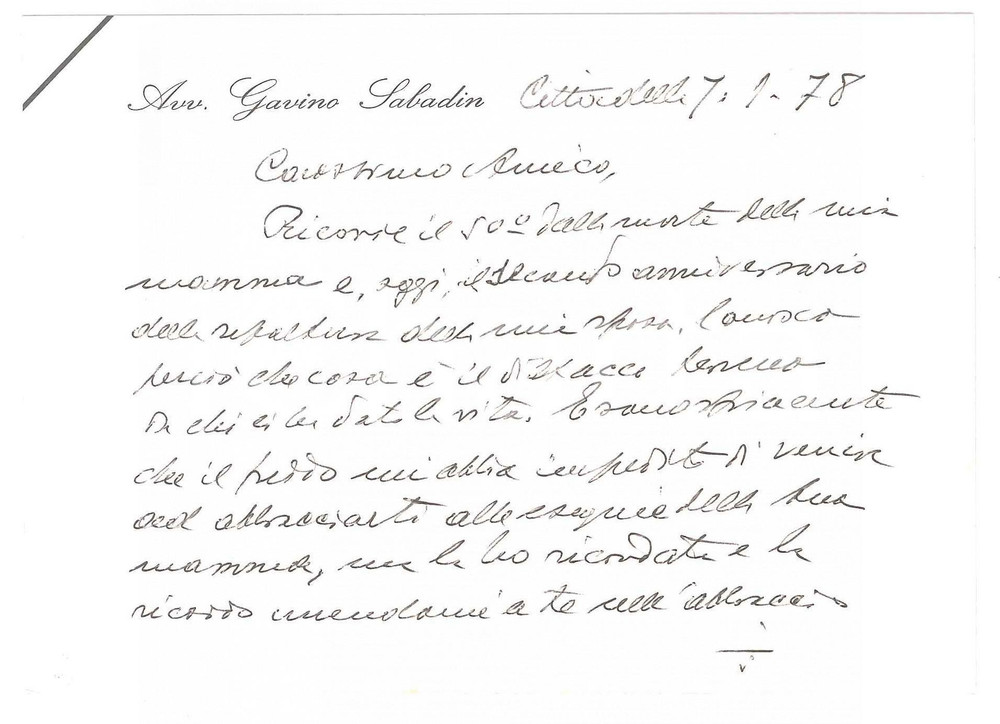 Avv. Gavino Sabadin Cittadella 7. 1. 78
Carissimo Amico,
Ricorre il 50º dalla morte della mia
mamma e, oggi, il secondo anniversario
della sepoltura della mia sposa. Conosco
perciò che cosa è il distacco terreno
da chi ci ha dato la vita. E sono spiacente
che il freddo mi abbia impedito di venire
ad abbracciarti alle esequie della tua
mamma, ma la ho ricordata e la
ricordo unendomi a te nell'abbraccio